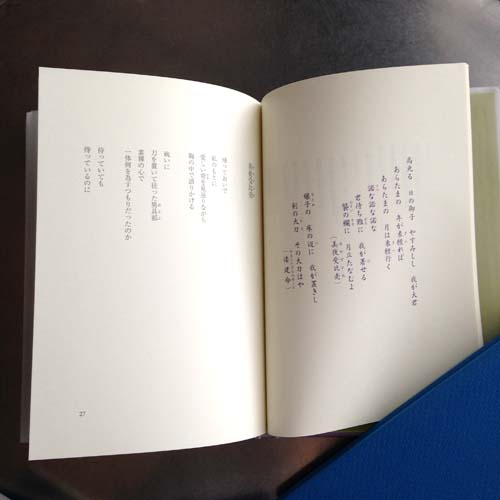 高光る　日の御子　やすみしし　我が大君
あらたまの　年が来経れば
あらたまの　月は来経行く
諾な諾な諾な
君待ち難に　我が著せる
襲の襴に　月立たなむよ
(美夜受比売)
嬢子の　床の辺に　我が置きし
剣の大刀　その大刀はや
(倭建命)
帰っておいで
私のもとに
愛しい
ながら
胸の中で語りかける
戦いに
刀を置いて征った
の心で
一体何を為すつもりだったのか
待っていても
待っているのに
27